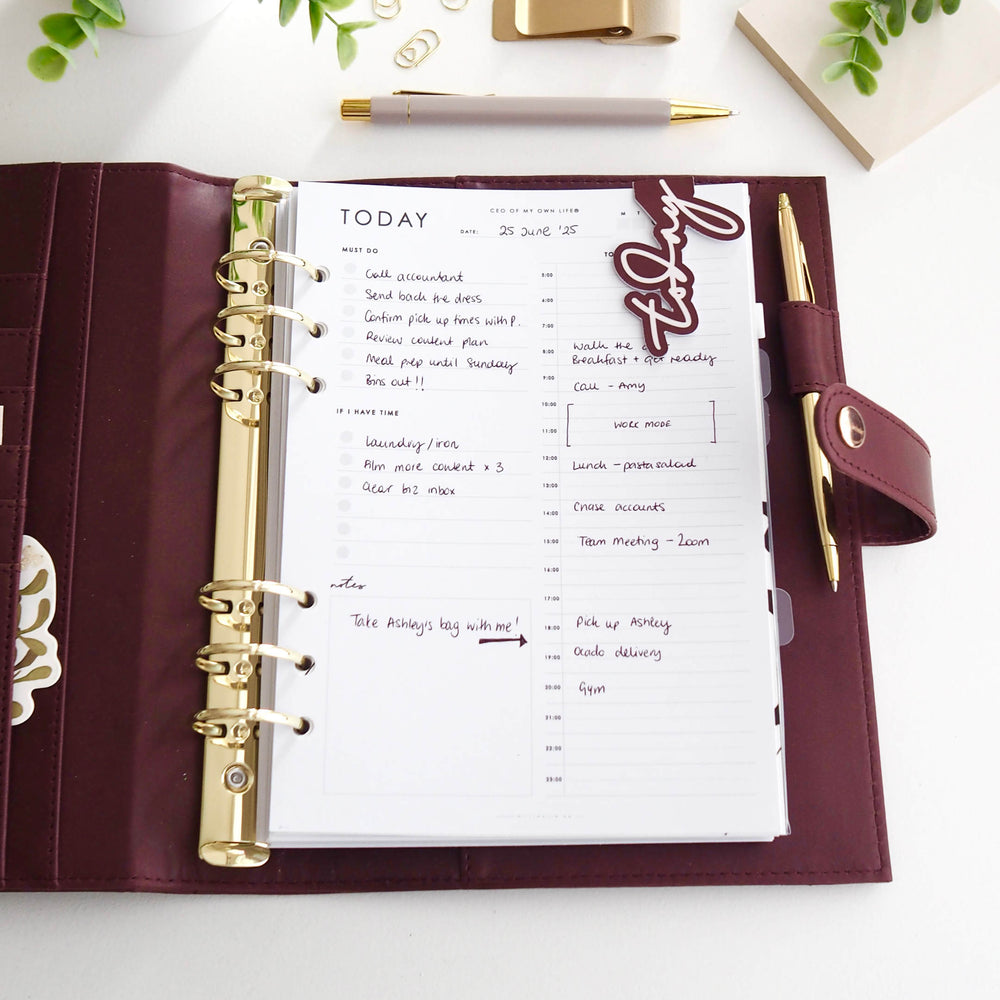 TODAY
CEO OF MY OWN LIFE®
M T
DATE: 25 June '25
today
MUST DO
Call accountant
Send back the dress
Confirm pick up times with P.
Review content plan
Meal prep until Sunday
Bins out!!
IF I HAVE TIME
Laundry/iron
Film more content x 3
Clear biz inbox
notes
Take Ashley's bag with me!
5:00
6:00
7:00
Walk the
8:00
Breakfast + get ready
9:00 Call - Amy
10:00
WORK MODE
11:00
12:00 Lunch - pasta salad
13:00
14:00 Chase accounts
15:00 Team Meeting - Zoom
16:00
17:00
18:00 Pick up Ashley
19:00 Ocado delivery
20:00 Gym
21:00
22:00
23:00